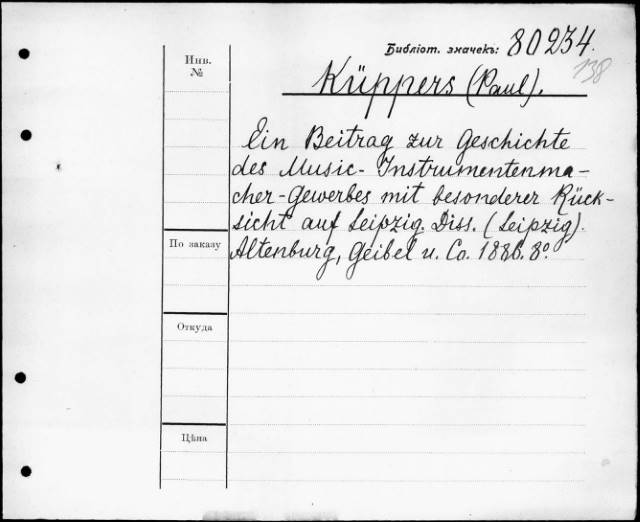 Библіот. значекъ: 80234.
138
Инв.
№
Küppers (Paul).
Ein Beitrag zur Geschichte
des Music-Instrumentenma-
cher-Gewerbes mit besonderer Rück-
sicht auf Leipzig. Diss. (Leipzig).
По заказу
Altenburg, Geibel u. Co. 1886. 8°.
Откуда
Цѣна